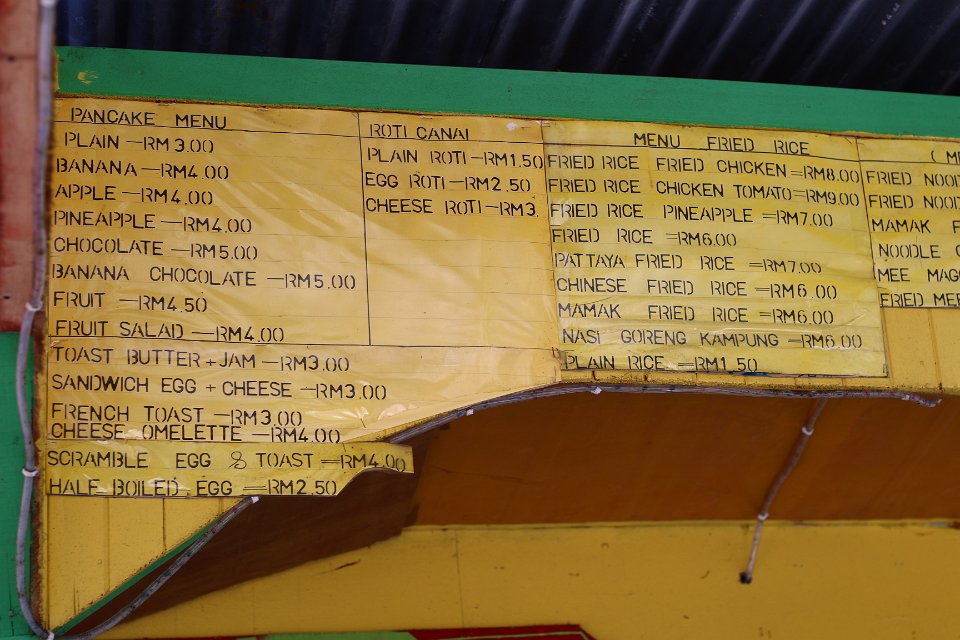 PANCAKE MENU
PLAIN —RM3.00
BANANA —RM4.00
APPLE —RM4.00
PINEAPPLE —RM4.00
CHOCOLATE —RM5.00
BANANA CHOCOLATE —RM5.00
FRUIT —RM4.50
FRUIT SALAD —RM4.00
TOAST BUTTER + JAM —RM3.00
SANDWICH EGG + CHEESE —RM3.00
FRENCH TOAST —RM3.00
CHEESE OMELETTE —RM4.00
SCRAMBLE EGG & TOAST —RM4.00
HALF BOILED EGG —RM2.50
ROTI CANAI
PLAIN ROTI —RM1.50
EGG ROTI —RM2.50
CHEESE ROTI —RM3.
MENU FRIED RICE
FRIED RICE FRIED CHICKEN =RM8.00
FRIED RICE CHICKEN TOMATO =RM9.00
FRIED RICE PINEAPPLE =RM7.00
FRIED RICE =RM6.00
PATTAYA FRIED RICE =RM7.00
CHINESE FRIED RICE =RM6.00
MAMAK FRIED RICE =RM6.00
NASI GORENG KAMPUNG =RM6.00
PLAIN RICE =RM1.50
FRIED
FRIED
MAMAK
NOODLE
MEE
FRIED